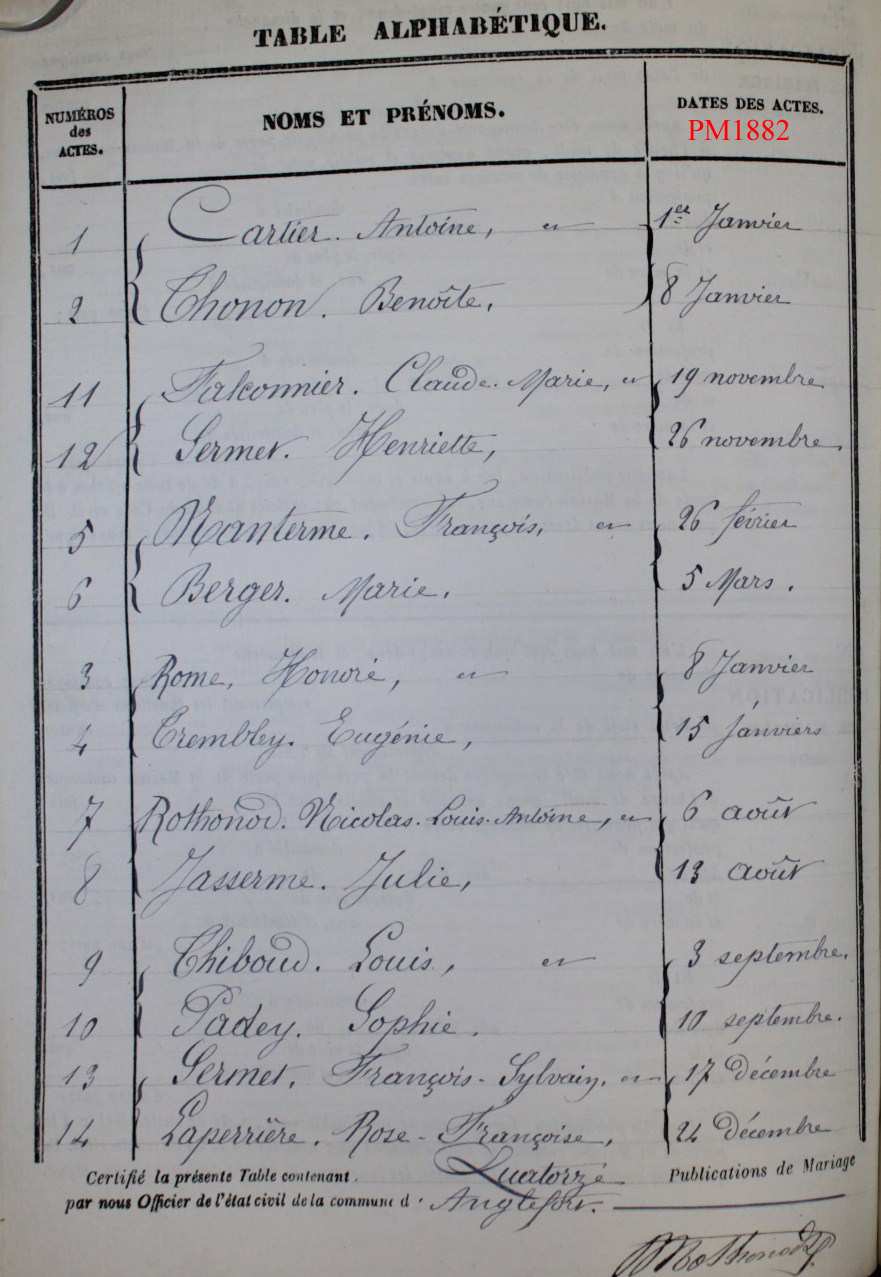 TABLE ALPHABÉTIQUE.
NUMÉROS des ACTES. NOMS ET PRÉNOMS. DATES DES ACTES.
PM1882
1 Cartier. Antoine, et 1er Janvier
2 Thonon. Benoîte, 8 Janvier
11 Falconnier. Claude-Marie, et 19 novembre
12 Sermet. Henriette, 26 novembre.
5 Manterme. François, et 26 février
6 Berger. Marie, 5 Mars.
3 Rome, Honoré, et 8 Janvier
4 Trembley. Eugénie, 15 janviers
7 Rothonod. Nicolas-Louis-Antoine, et 6 août
8 Jasserme. Julie, 13 août
9 Thiboud. Louis, et 3 septembre.
10 Padey. Sophie. 10 septembre.
13 Sermet. François-Sylvain, et 17 Décembre
14 Laperrière. Rose-Françoise, 24 décembre
Certifié la présente Table contenant Quatorze Publications de Mariage
par nous Officier de l'état civil de la commune d' Anglefort.
Rothonod